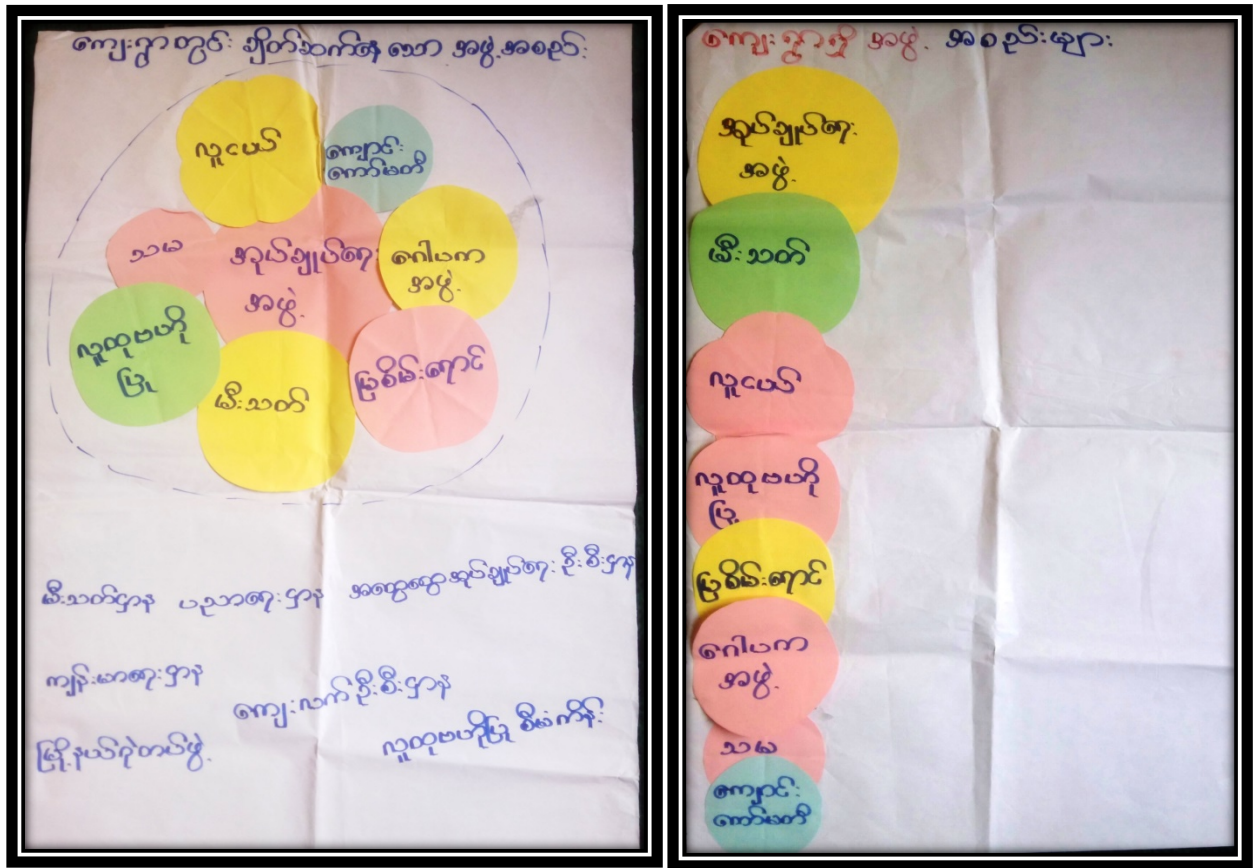 ကျေးရွာတွင် ချိတ်ဆက်နေသော အဖွဲ့အစည်း
လူငယ်
ကျောင်း
ကော်မတီ
သမ
အုပ်ချုပ်ရေး
အဖွဲ့
ဂေါပက
အဖွဲ့
လူထုဗဟို
ပြု
မီးသတ်
မြစိမ်းရောင်
မီးသတ်ဌာန ပညာရေးဌာန အထွေထွေအုပ်ချုပ်ရေးဦးစီးဌာန
ကျန်းမာရေးဌာန
ကျေးလက်ဦးစီးဌာန
မြို့နယ်ရဲတပ်ဖွဲ့
လူထုဗဟိုပြုစီမံကိန်း
ကျေးရွာရှိ အဖွဲ့အစည်းများ
အုပ်ချုပ်ရေး
အဖွဲ့
မီးသတ်
လူငယ်
လူထုဗဟို
ပြု
မြစိမ်းရောင်
ဂေါပက
အဖွဲ့
သမ
ကျောင်း
ကော်မတီ